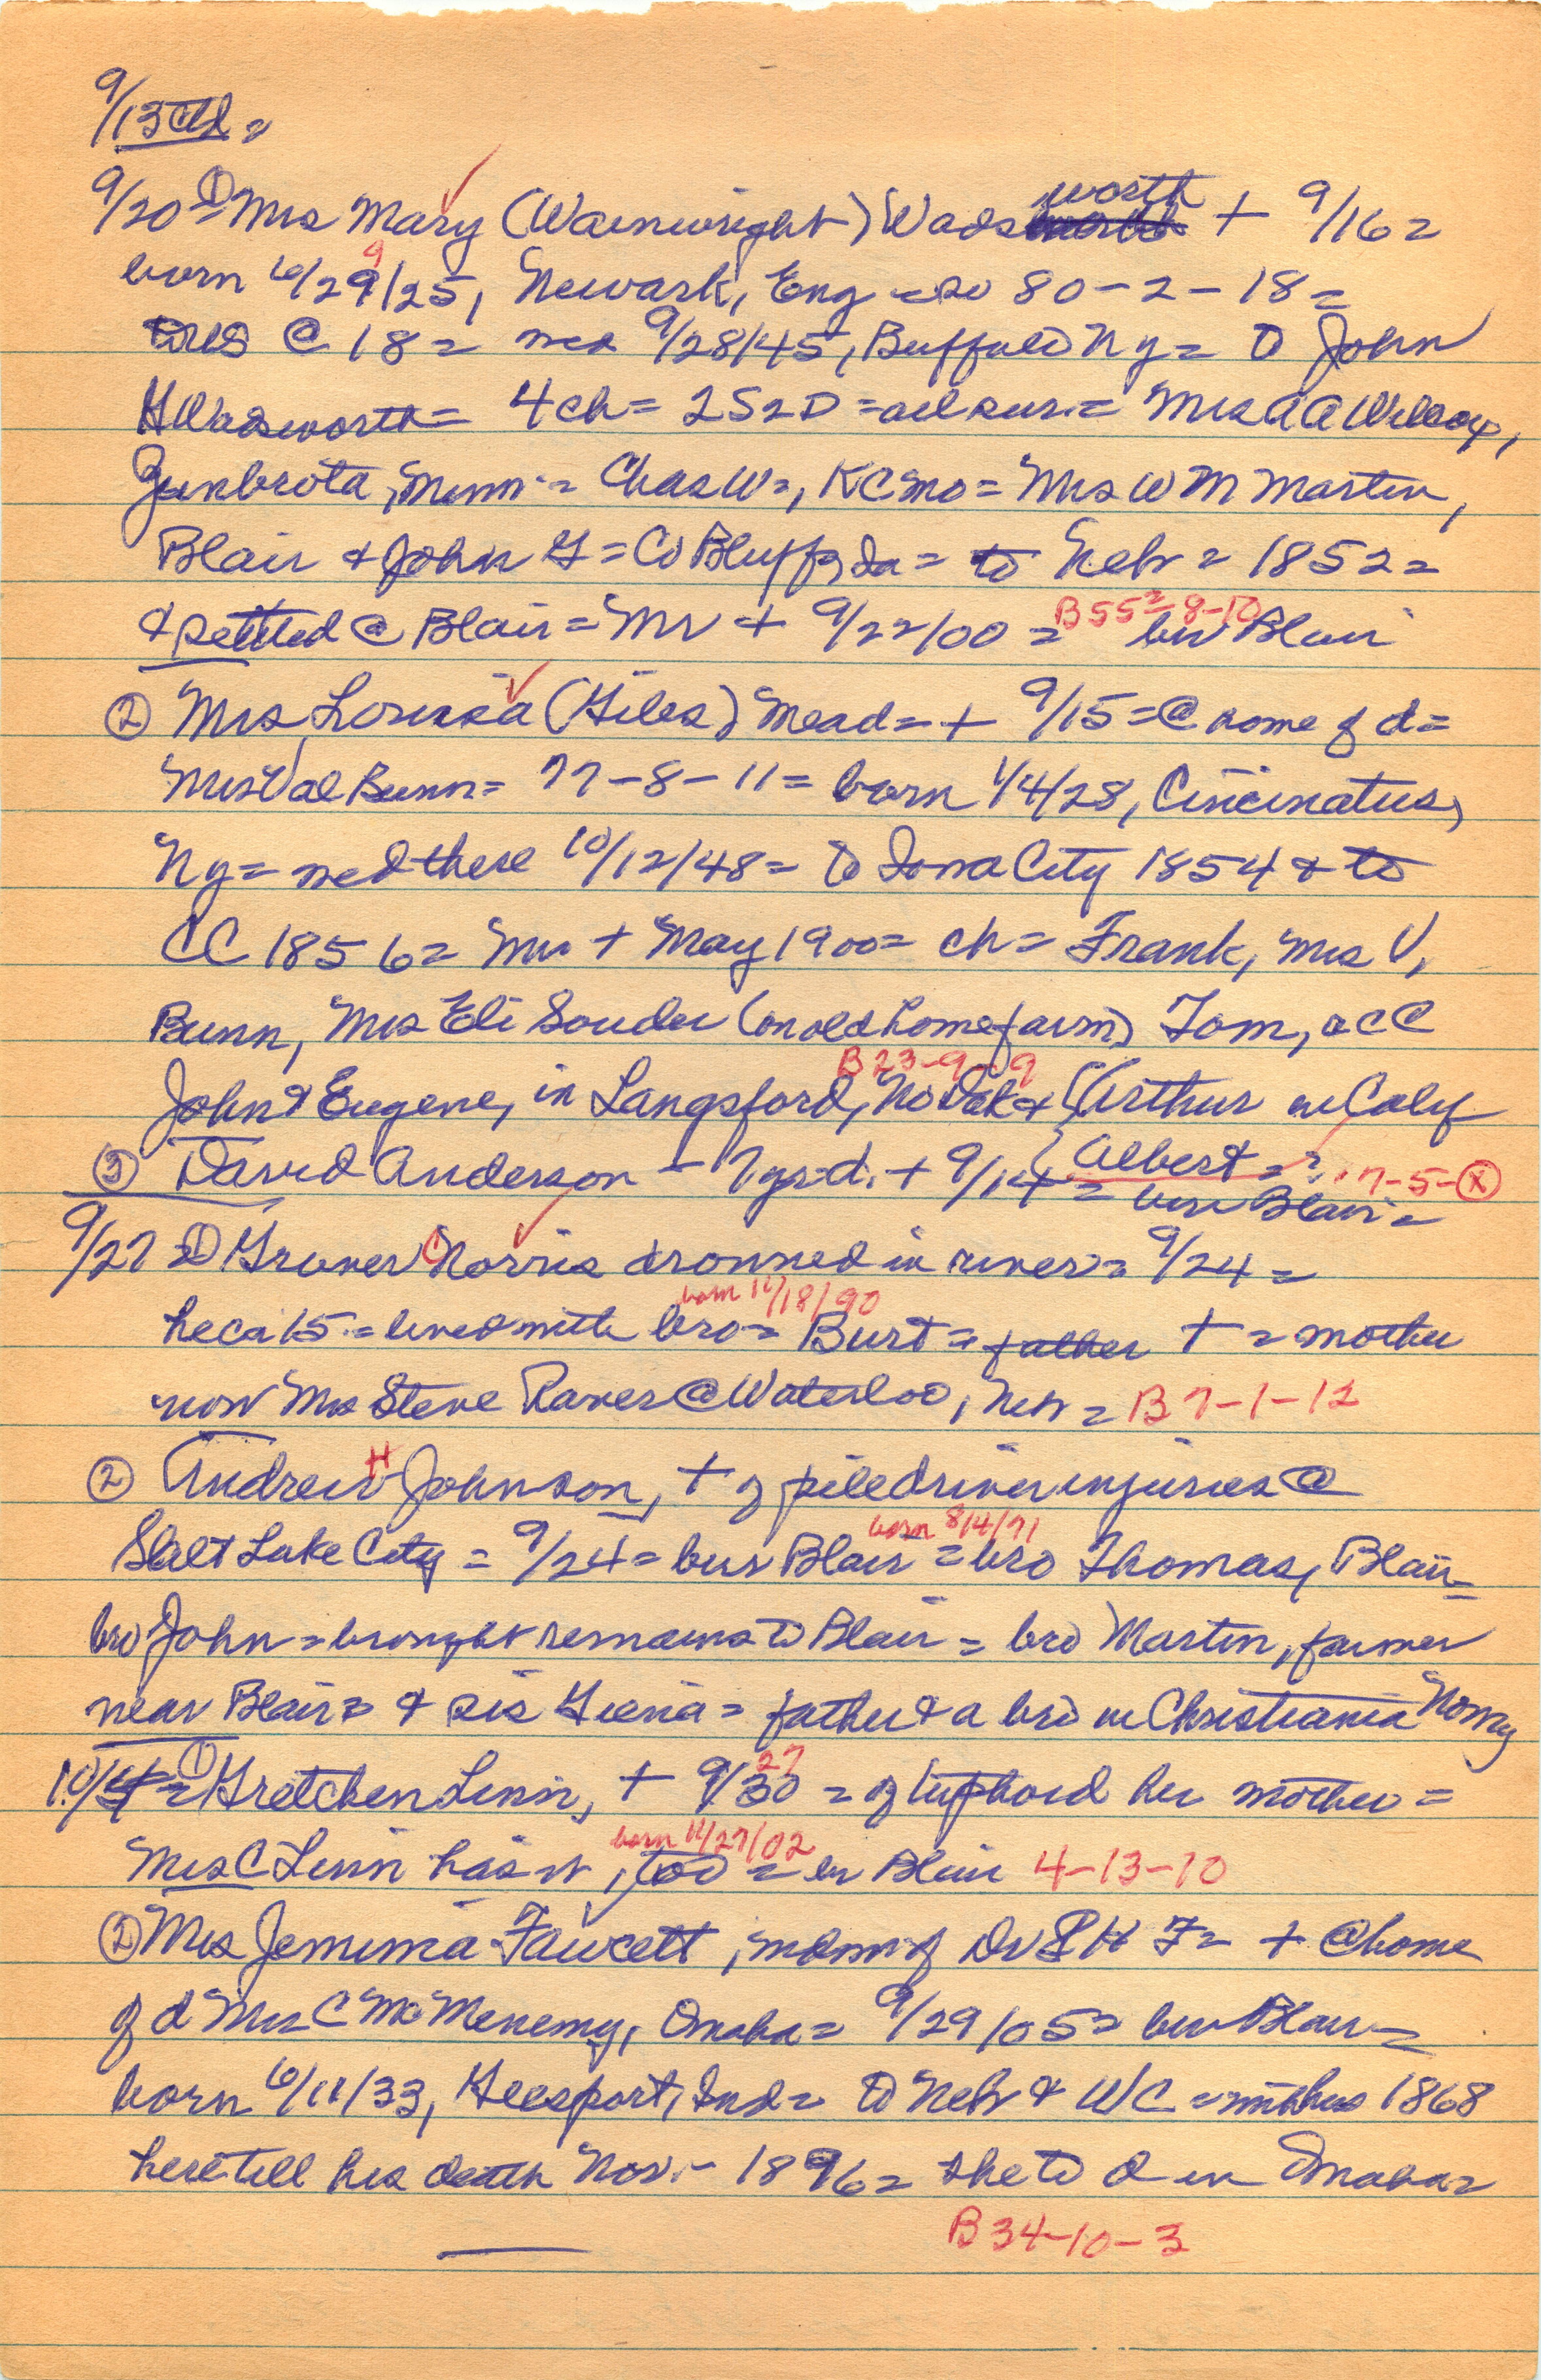 9/13
9/20 = ① Mrs Mary (Wainwright) Wadsworth + 9/16 =
born 6/29/25, Newark, Eng = so 80-2-18 =
to US @ 18 = med 9/28/45, Buffalo Ny = to John
H Wadsworth = 4 ch = 2S 2D = all sur. = Mrs A A Wilcox,
Zumbrota, Minn = Chas W =, KC Mo = Mrs W M Martin,
Blair & John G = Co Bluffs, Ia = to Nebr = 1852 =
& settled @ Blair = Mr + 9/22/00 = bur Blair
B 55 2-8-10
② Mrs Louisa (Giles) Mead = + 9/15 = @ home of d =
Mrs Val Bunn = 77-8-11 = born 1/4/28, Cincinatus,
Ny = med there 10/12/48 = to Iowa City 1854 & to
CC 1856 = Mr + May 1900 = ch = Frank, Mrs V,
Bunn, Mrs Eli Souder (on old home farm) Tom, a CC
B 23-9-19
John & Eugene, in Langsford, No Dak & Arthur in Calif
Albert = ?
③ David Anderson - 7 ys-d. + 9/14 = bur Blair =
7-5-Ⓧ
9/27 = ① Grover C Norris drowned in river = 9/24 =
born 11/18/90
he ca 15 = lived with bro = Burt = father + = mother
now Mrs Steve Raver @ Waterloo, Nebr = B 7-1-12
② Andrew H Johnson, + of piledriver injuries @
born 8/4/71
Salt Lake City = 9/24 = bur Blair = bro Thomas, Blair =
bro John = brought remains to Blair = bro Martin, farmer
near Blair = & sis Geena = father & a bro in Christiania Norwy
10/4 = ① Gretchen Linn, + 9/30 27 = of typhoid her mother =
born 11/27/02
Mrs C Linn has it, too = br Blair 4-13-10
② Mrs Jemima Fawcett, mom of Dr S H F = + @ home
of d Mrs C McMenemy, Omaha = 9/29/05 = bur Blair =
born 6/11/33, Geesport, Ind = to Nebr & WC = with hus 1868
here till his death Nov. - 1896 = she to d in Omaha =
B 34-10-3